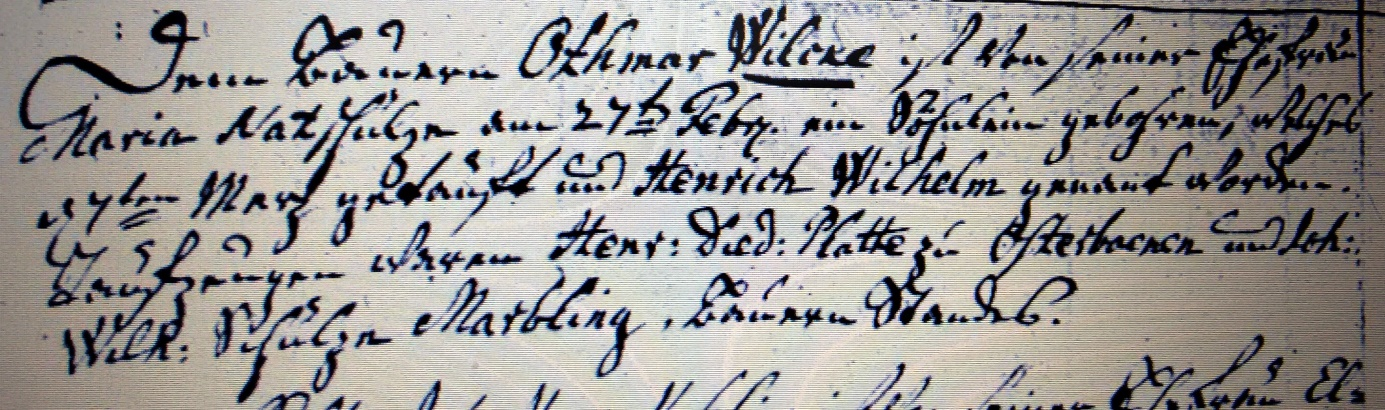 Dem Bauern Othmar Wilcke ist von seiner Ehefrau
Maria Natschulze am 27t Febr. ein Söhnlein gebohren, welches
ten Merz getauft und Henrich Wilhelm genant worden.
Taufzeugen waren Henr: Died: Platte zu Osterboenen und Joh:
Wilh: Schulze Marbling, Bauern Standes.
von seiner Ehefrau